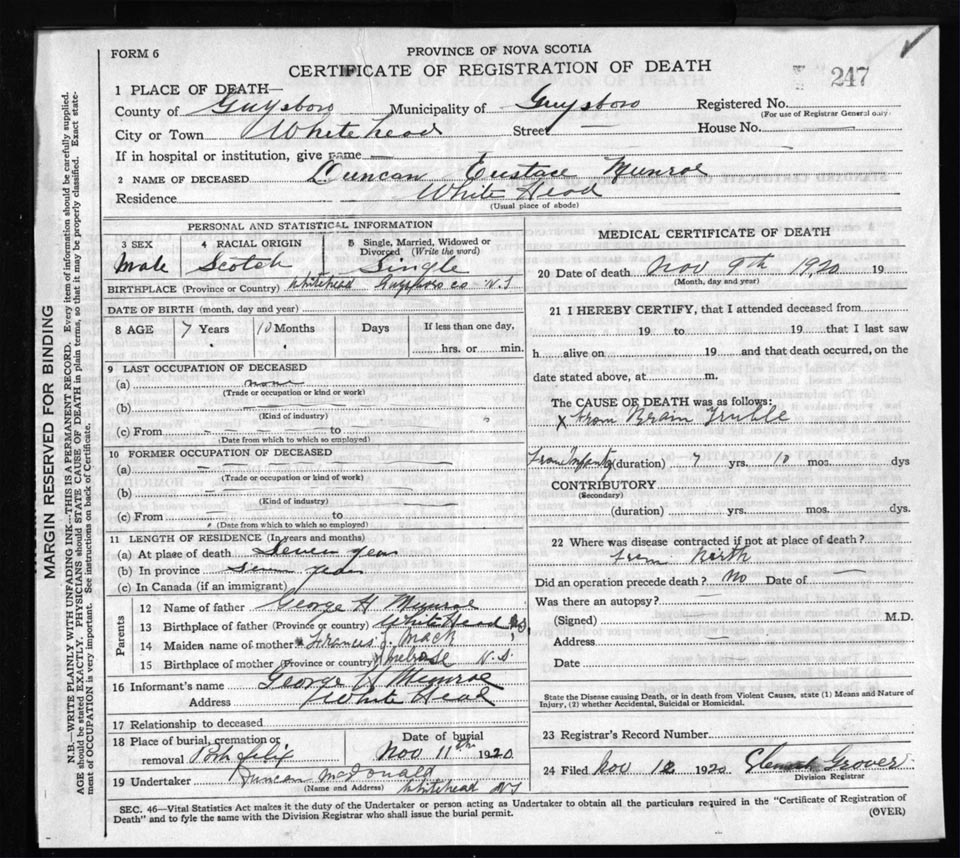 FORM 6
PROVINCE OF NOVA SCOTIA
CERTIFICATE OF REGISTRATION OF DEATH
247
1 PLACE OF DEATH—
County of Guysboro Municipality of Guysboro Registered No.
(For use of Registrar General only)
City or Town Whitehead Street — House No. —
If in hospital or institution, give name —
2 NAME OF DECEASED Duncan Eustase Munroe
Residence White Head
(Usual place of abode)
PERSONAL AND STATISTICAL INFORMATION
3 SEX 4 RACIAL ORIGIN 5 Single, Married, Widowed or Divorced (Write the word)
Male Scotch Single
BIRTHPLACE (Province or Country) Whitehead Guysboro co N.S
DATE OF BIRTH (month, day and year)
8 AGE 7 Years 10 Months Days If less than one day,
hrs. or min.
9 LAST OCCUPATION OF DECEASED
(a) none
(Trade or occupation or kind or work)
(b)
(Kind of industry)
(c) From to
(Date from which to which so employed)
10 FORMER OCCUPATION OF DECEASED
(a)
(Trade or occupation or kind of work)
(b)
(Kind of industry)
(c) From to
(Date from which to which so employed)
11 LENGTH OF RESIDENCE (In years and months)
(a) At place of death Seven year
(b) In province Seven year
(c) In Canada (if an immigrant)
Parents
12 Name of father George H Munroe
13 Birthplace of father (Province or country) White Head N.S.
14 Maiden name of mother Frances J. Mack
15 Birthplace of mother (Province or country) Melrose N.S
16 Informant's name George H Munroe
Address White Head
17 Relationship to deceased
18 Place of burial, cremation or removal Port felix
Date of burial Nov 11th 1920
19 Undertaker Duncan McDonald
(Name and Address) Whitehead NS
MEDICAL CERTIFICATE OF DEATH
20 Date of death Nov 9th 1920 19
(Month, day and year)
21 I HEREBY CERTIFY, that I attended deceased from
19 to 19 that I last saw
h alive on 19 and that death occurred, on the
date stated above, at m.
The CAUSE OF DEATH was as follows:
x from Brain Truble
From Infanty (duration) 7 yrs. 10 mos. dys
CONTRIBUTORY
(Secondary)
(duration) yrs. mos. dys.
22 Where was disease contracted if not at place of death?
from birth
Did an operation precede death? No Date of —
Was there an autopsy? —
(Signed) M.D.
Address —
Date
State the Disease causing Death, or in death from Violent Causes, state (1) Means and Nature of
Injury, (2) whether Accidental, Suicidal or Homicidal.
23 Registrar's Record Number
24 Filed Nov 12 1920 Grover
Division Registrar
SEC. 46—Vital Statistics Act makes it the duty of the Undertaker or person acting as Undertaker to obtain all the particulars required in the "Certificate of Registration of
Death" and to fyle the same with the Division Registrar who shall issue the burial permit.
(OVER)
MARGIN RESERVED FOR BINDING
N.B.—WRITE PLAINLY WITH UNFADING INK—THIS IS A PERMANENT RECORD. Every item of information should be carefully supplied.
AGE should be stated EXACTLY. PHYSICIANS should STATE CAUSE OF DEATH in plain terms, so that it may be properly classified. Exact state-
ment of OCCUPATION is very important. See instructions on back of Certificate.